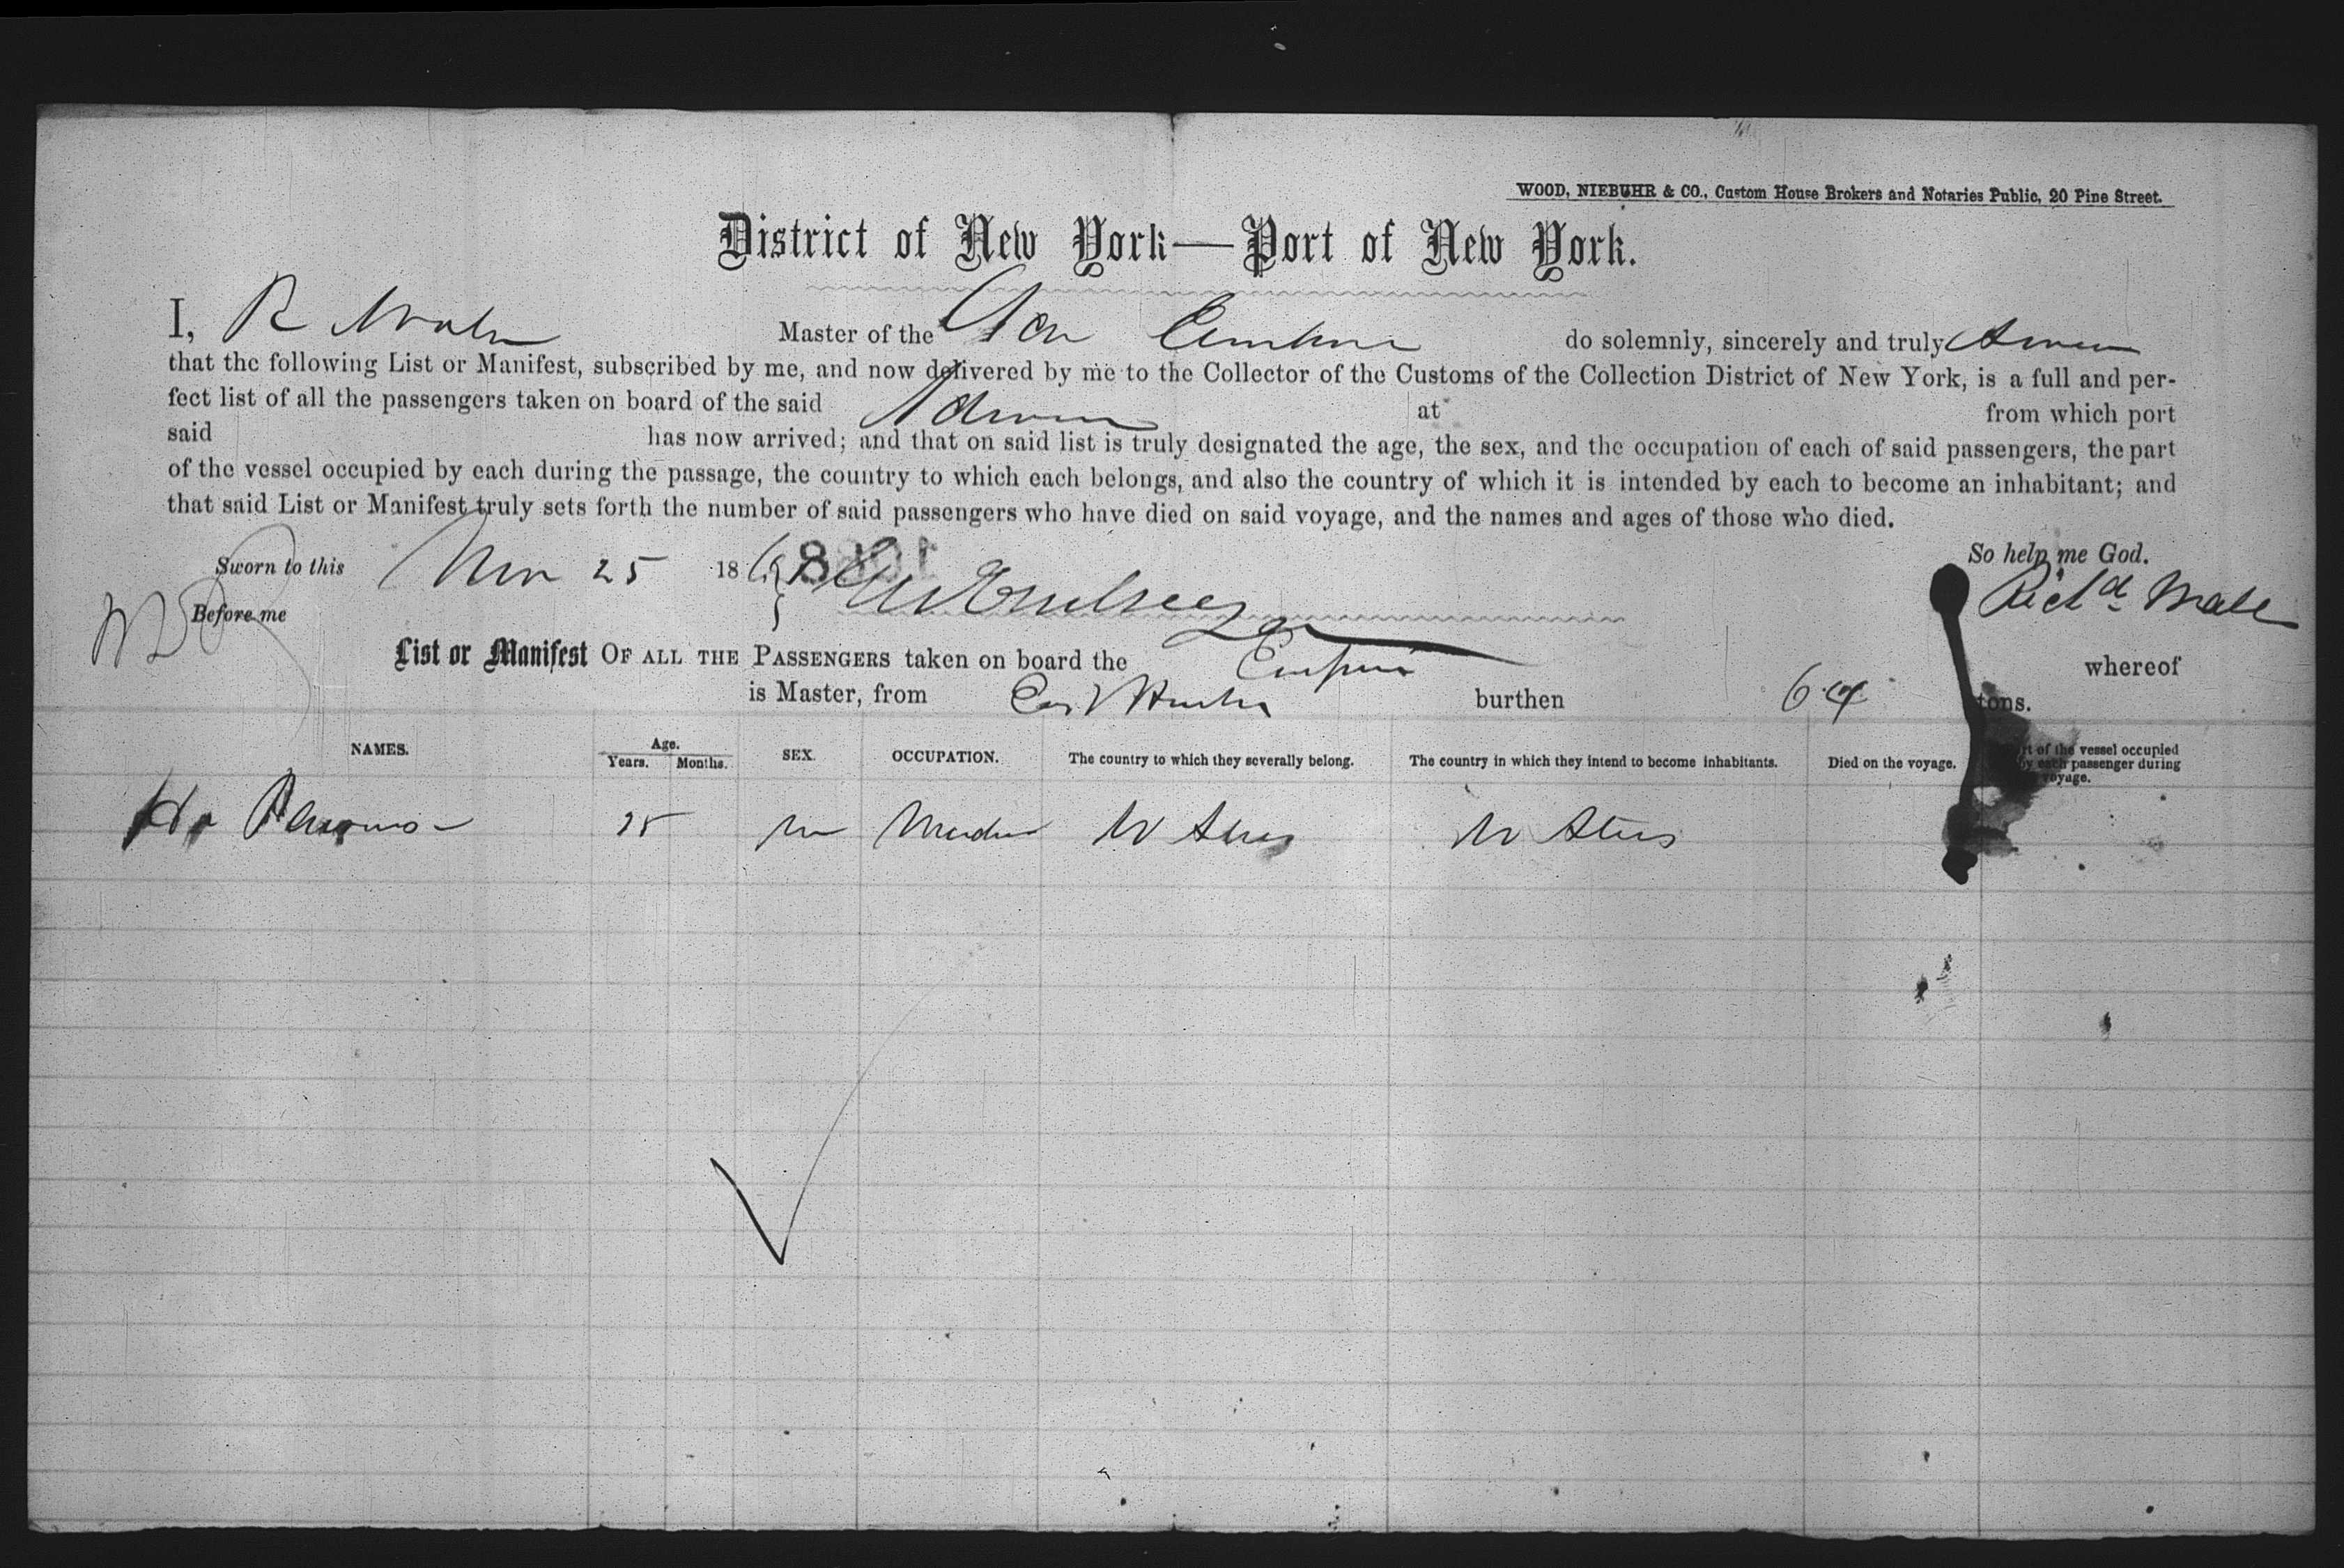 WOOD, NIEBUHR & CO., Custom House Brokers and Notaries Public, 20 Pine Street.
District of New York—Port of New York.
I, R Master of the do solemnly, sincerely and truly
that the following List or Manifest, subscribed by me, and now delivered by me to the Collector of the Customs of the Collection District of New York, is a full and per-
fect list of all the passengers taken on board of the said at from which port
said has now arrived; and that on said list is truly designated the age, the sex, and the occupation of each of said passengers, the part
of the vessel occupied by each during the passage, the country to which each belongs, and also the country of which it is intended by each to become an inhabitant; and
that said List or Manifest truly sets forth the number of said passengers who have died on said voyage, and the names and ages of those who died.
So help me God.
Sworn to this Nov 25 18
Richd
Before me
List or Manifest OF ALL THE PASSENGERS taken on board the Empire whereof
is Master, from burthen 64 tons.
NAMES. Age. Years. Months. SEX. OCCUPATION. The country to which they severally belong. The country in which they intend to become inhabitants. Died on the voyage. of the vessel occupied by each passenger during voyage.
m